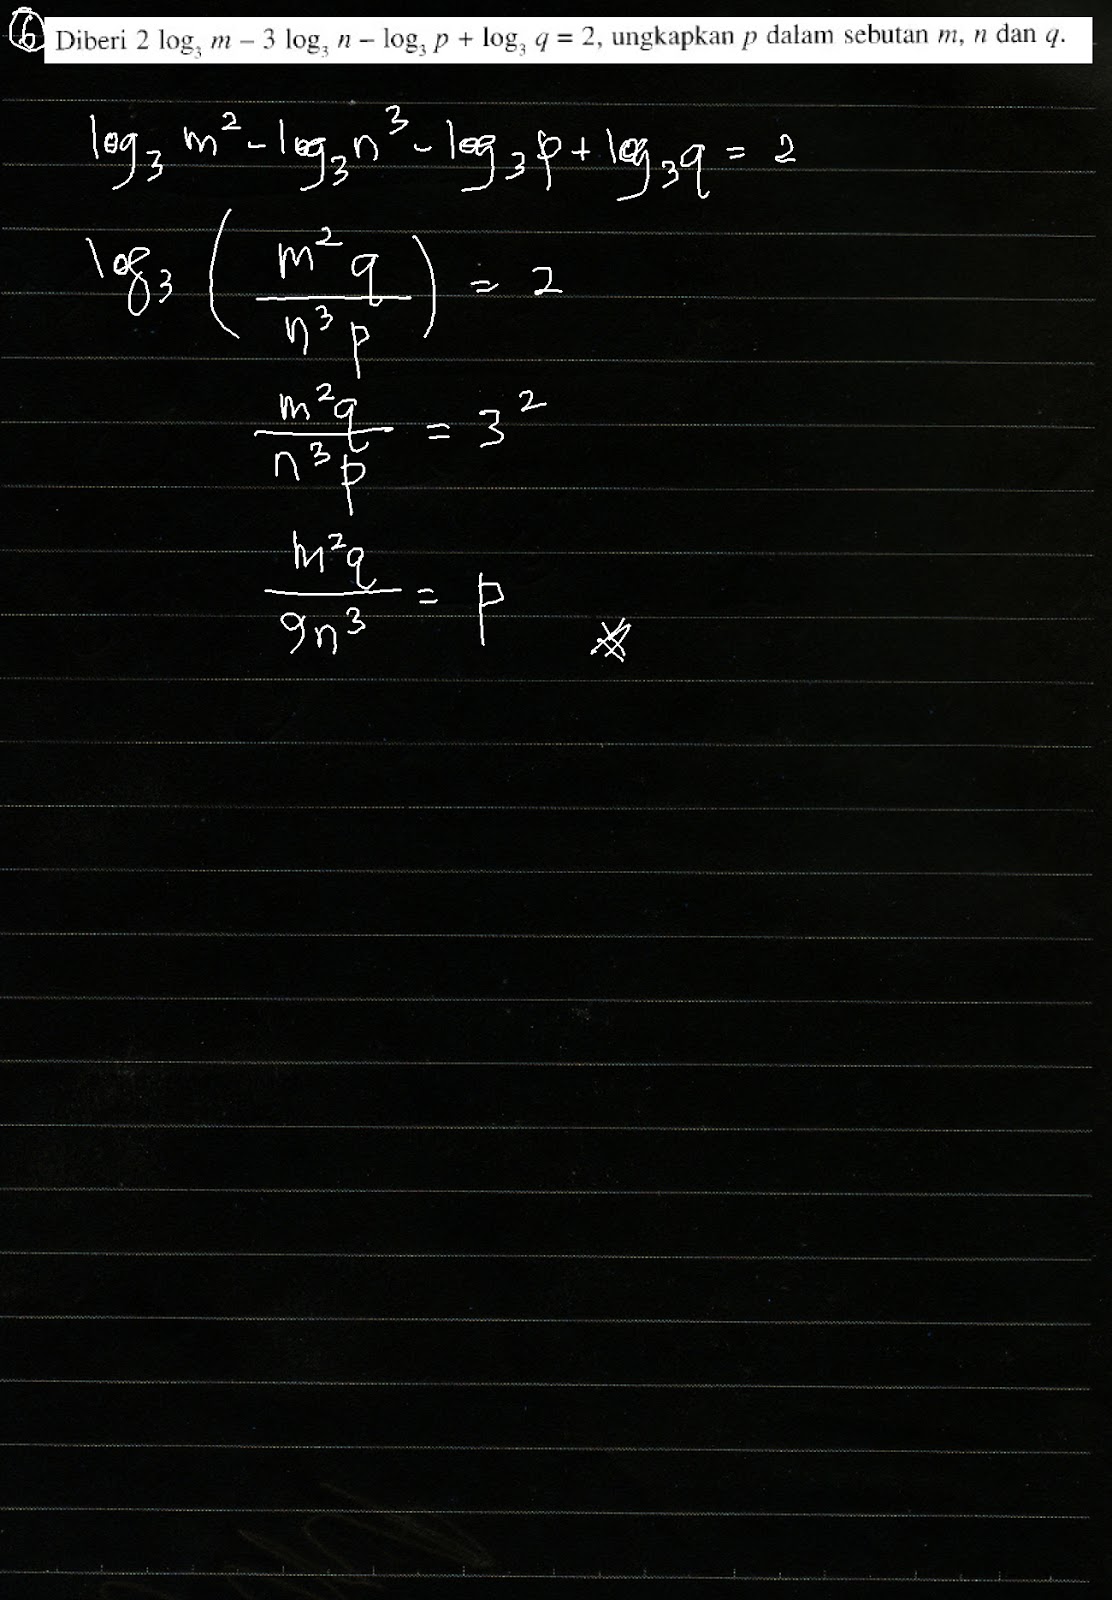 6 Diberi 2 log₃ m – 3 log₃ n – log₃ p + log₃ q = 2, ungkapkan p dalam sebutan m, n dan q.
log₃ m² - log₃ n³ - log₃ p + log₃ q = 2
log₃ (m²q / n³p) = 2
m²q / n³p = 3²
m²q / 9n³ = p